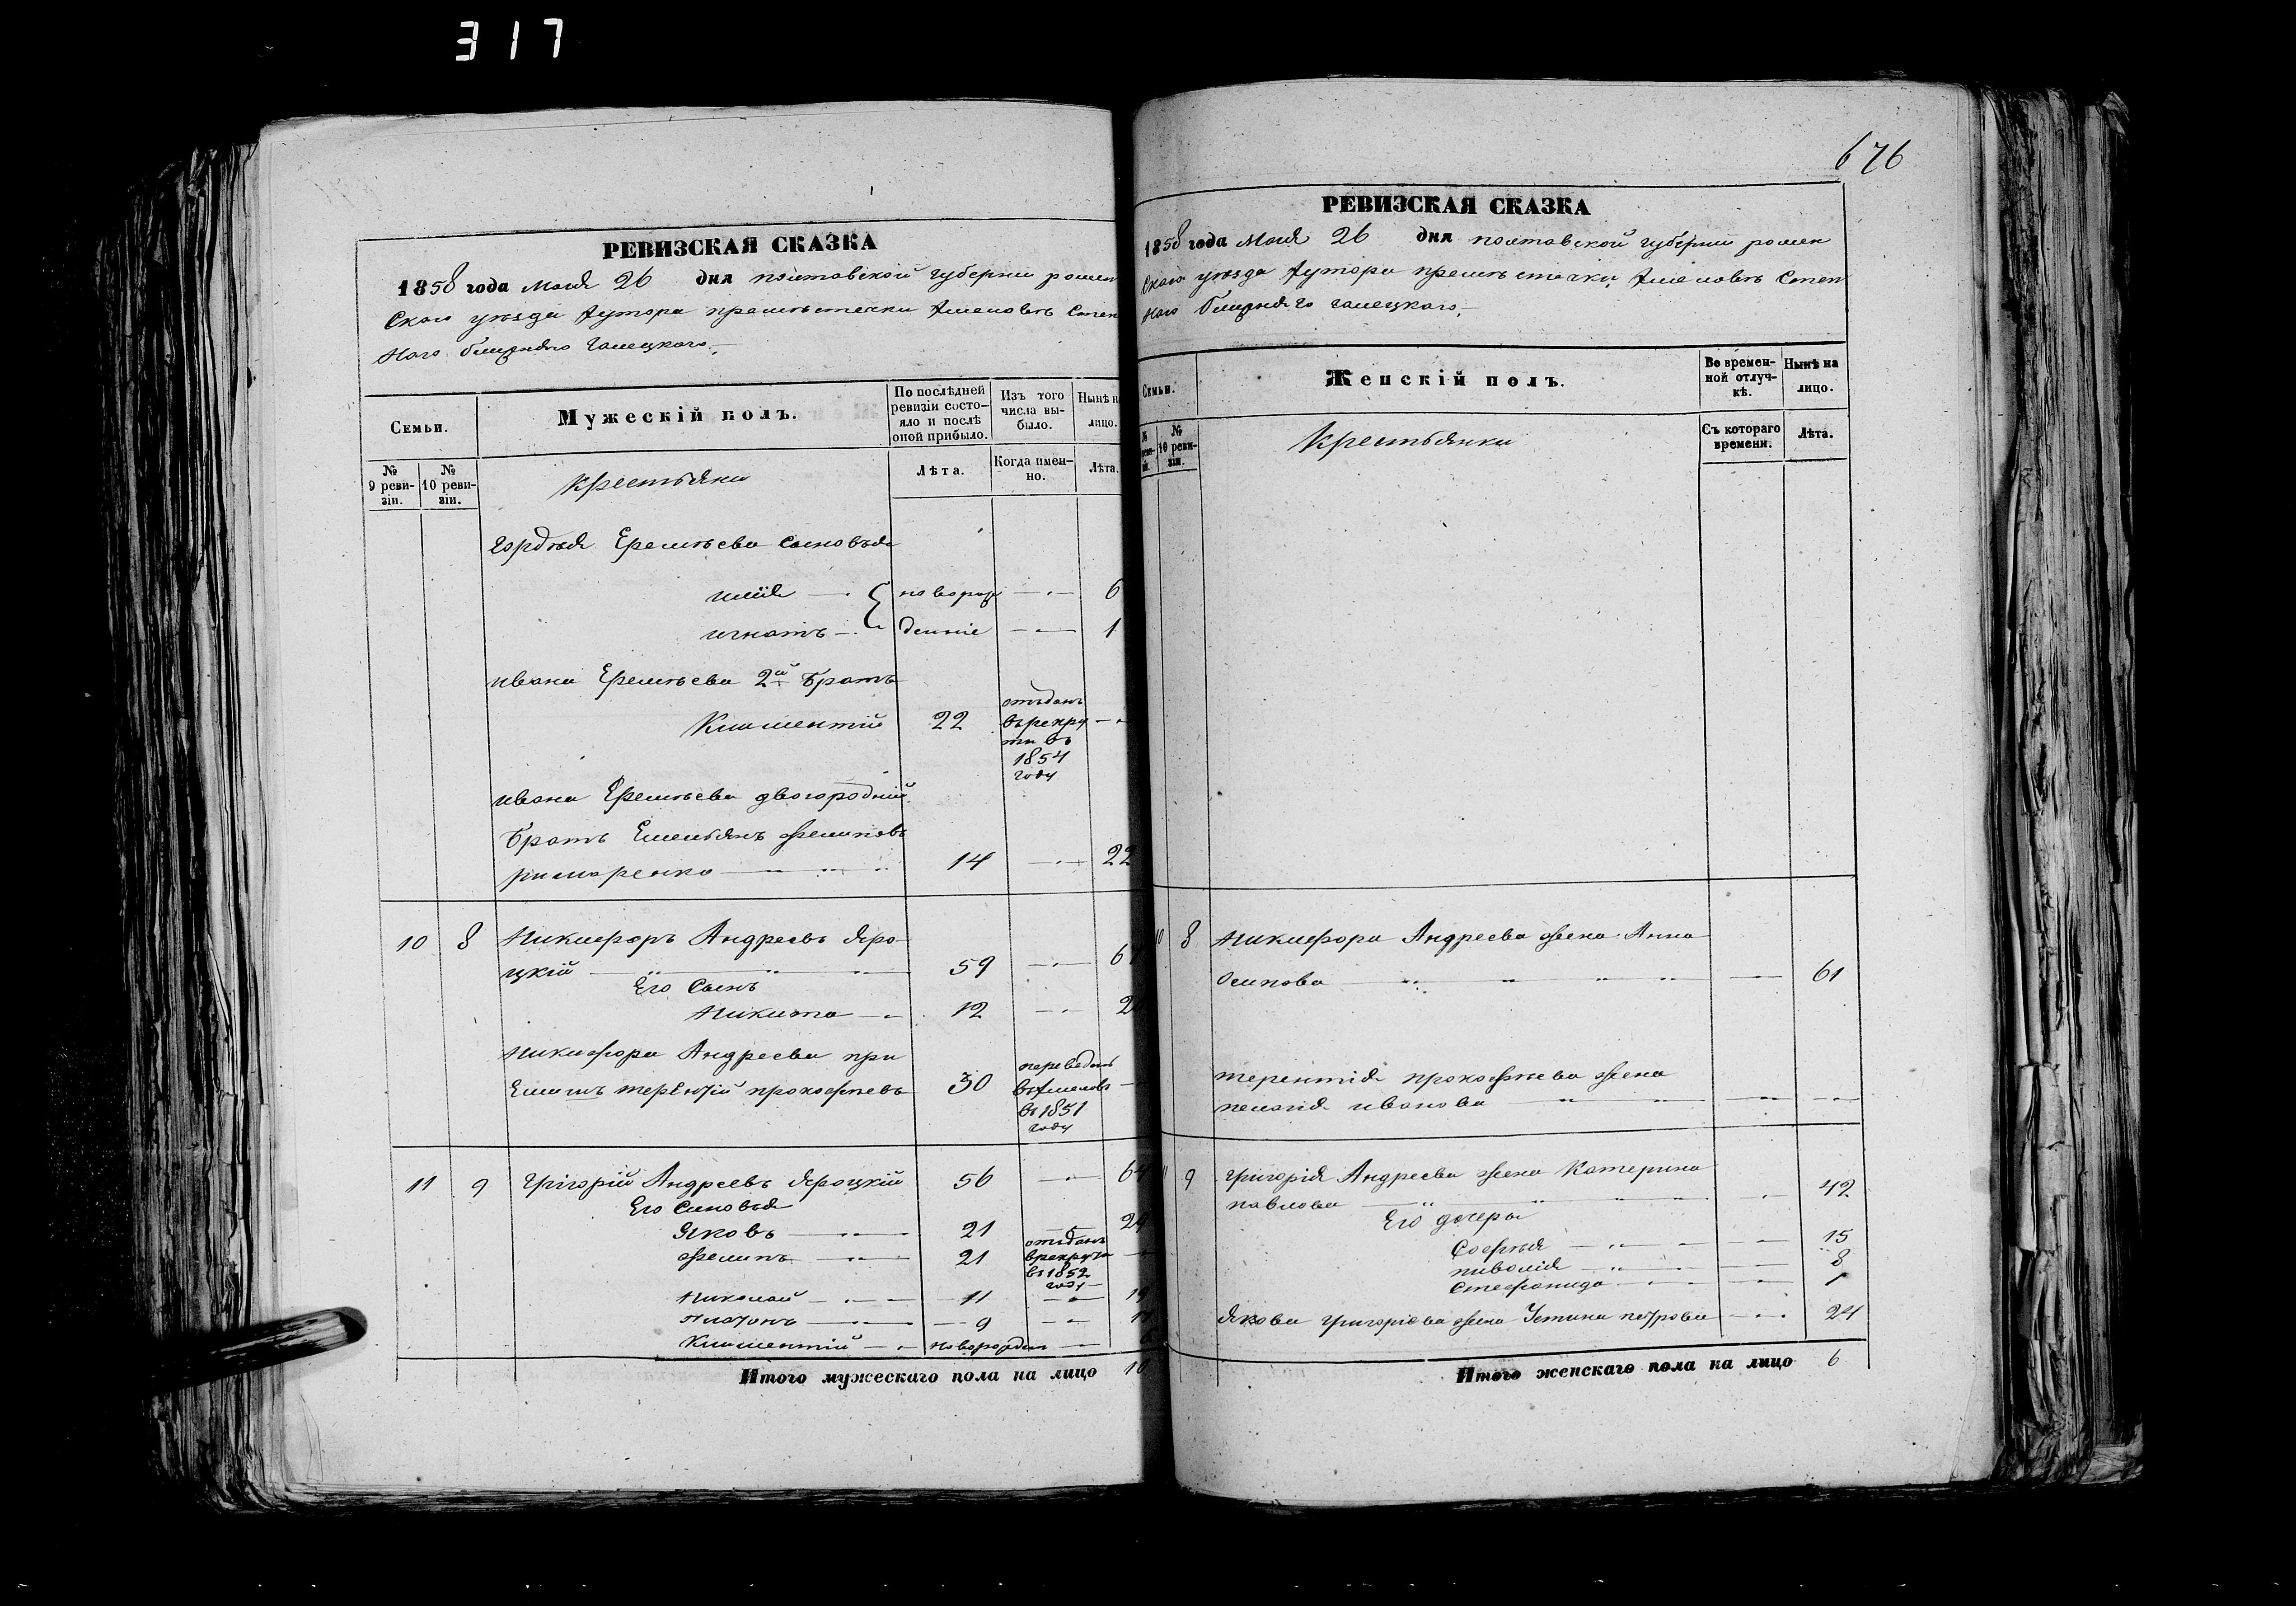 317
РЕВИЗСКАЯ СКАЗКА
1858 года Мая 26 дня полтавской губернии ромен
скаго уезда Хутора
Наго ближняго галецкаго.
Семьи.
Мужескій полъ.
По послѣдней ревизіи состо-
яло и послѣ оной прибыло.
Изъ того числа вы-
было.
Нынѣ на
лицо.
№ 9 реви-
зіи.
№ 10 реви-
зіи.
крестьяни
Лѣта.
Когда имен-
но.
Лѣта.
гордѣя Ефемѣева сыновья
илія новорож 6
игнатъ денніе 1
ивана Ефемѣева 2й братъ
Климентій 22 отъданъ въ рекру ти въ 1854 году
ивана Ефемѣева двогородній
братъ Емельянъ филиповъ
римаренко 14 22
10 8 Никифоръ Андреевъ Яро-
цкій 59 67
Его сынъ
Никита 12 20
Никифора Андреева при
Емышъ терентій прокофѣевъ 30 переведенъ въ 1851 году
11 9 григорій Андреевъ Яроцкій 56 64
Его синовья
Яковъ 21 29
филипъ 21 отъданъ в рекрута въ 1852 году
Николай 11 19
платонъ 9 17
Климентій новорожден
Итого мужескаго пола на лицо 10
676
РЕВИЗСКАЯ СКАЗКА
1858 года Мая 26 дня полтавской губерніи ромен
скаго уѣзда Хутора
Наго ближняго галецкаго.
Семьи.
Женскій полъ.
Во времен-
ной отлуч-
кѣ.
Нынѣ на
лицо.
№ 10 реви-
зіи.
крестьянки
Съ котораго
времени.
Лѣта.
10 8 Никифора Андреева жена Анна
осипова 61
терентія прокофѣева жена
пелагія иванова
11 9 григорія Андреева жена Катерина
павлова 42
Его дочеры
Софѣя 15
8
Стефанида 1
Якова григорієва жена Устина петрова 24
Итого женскаго пола на лицо 6